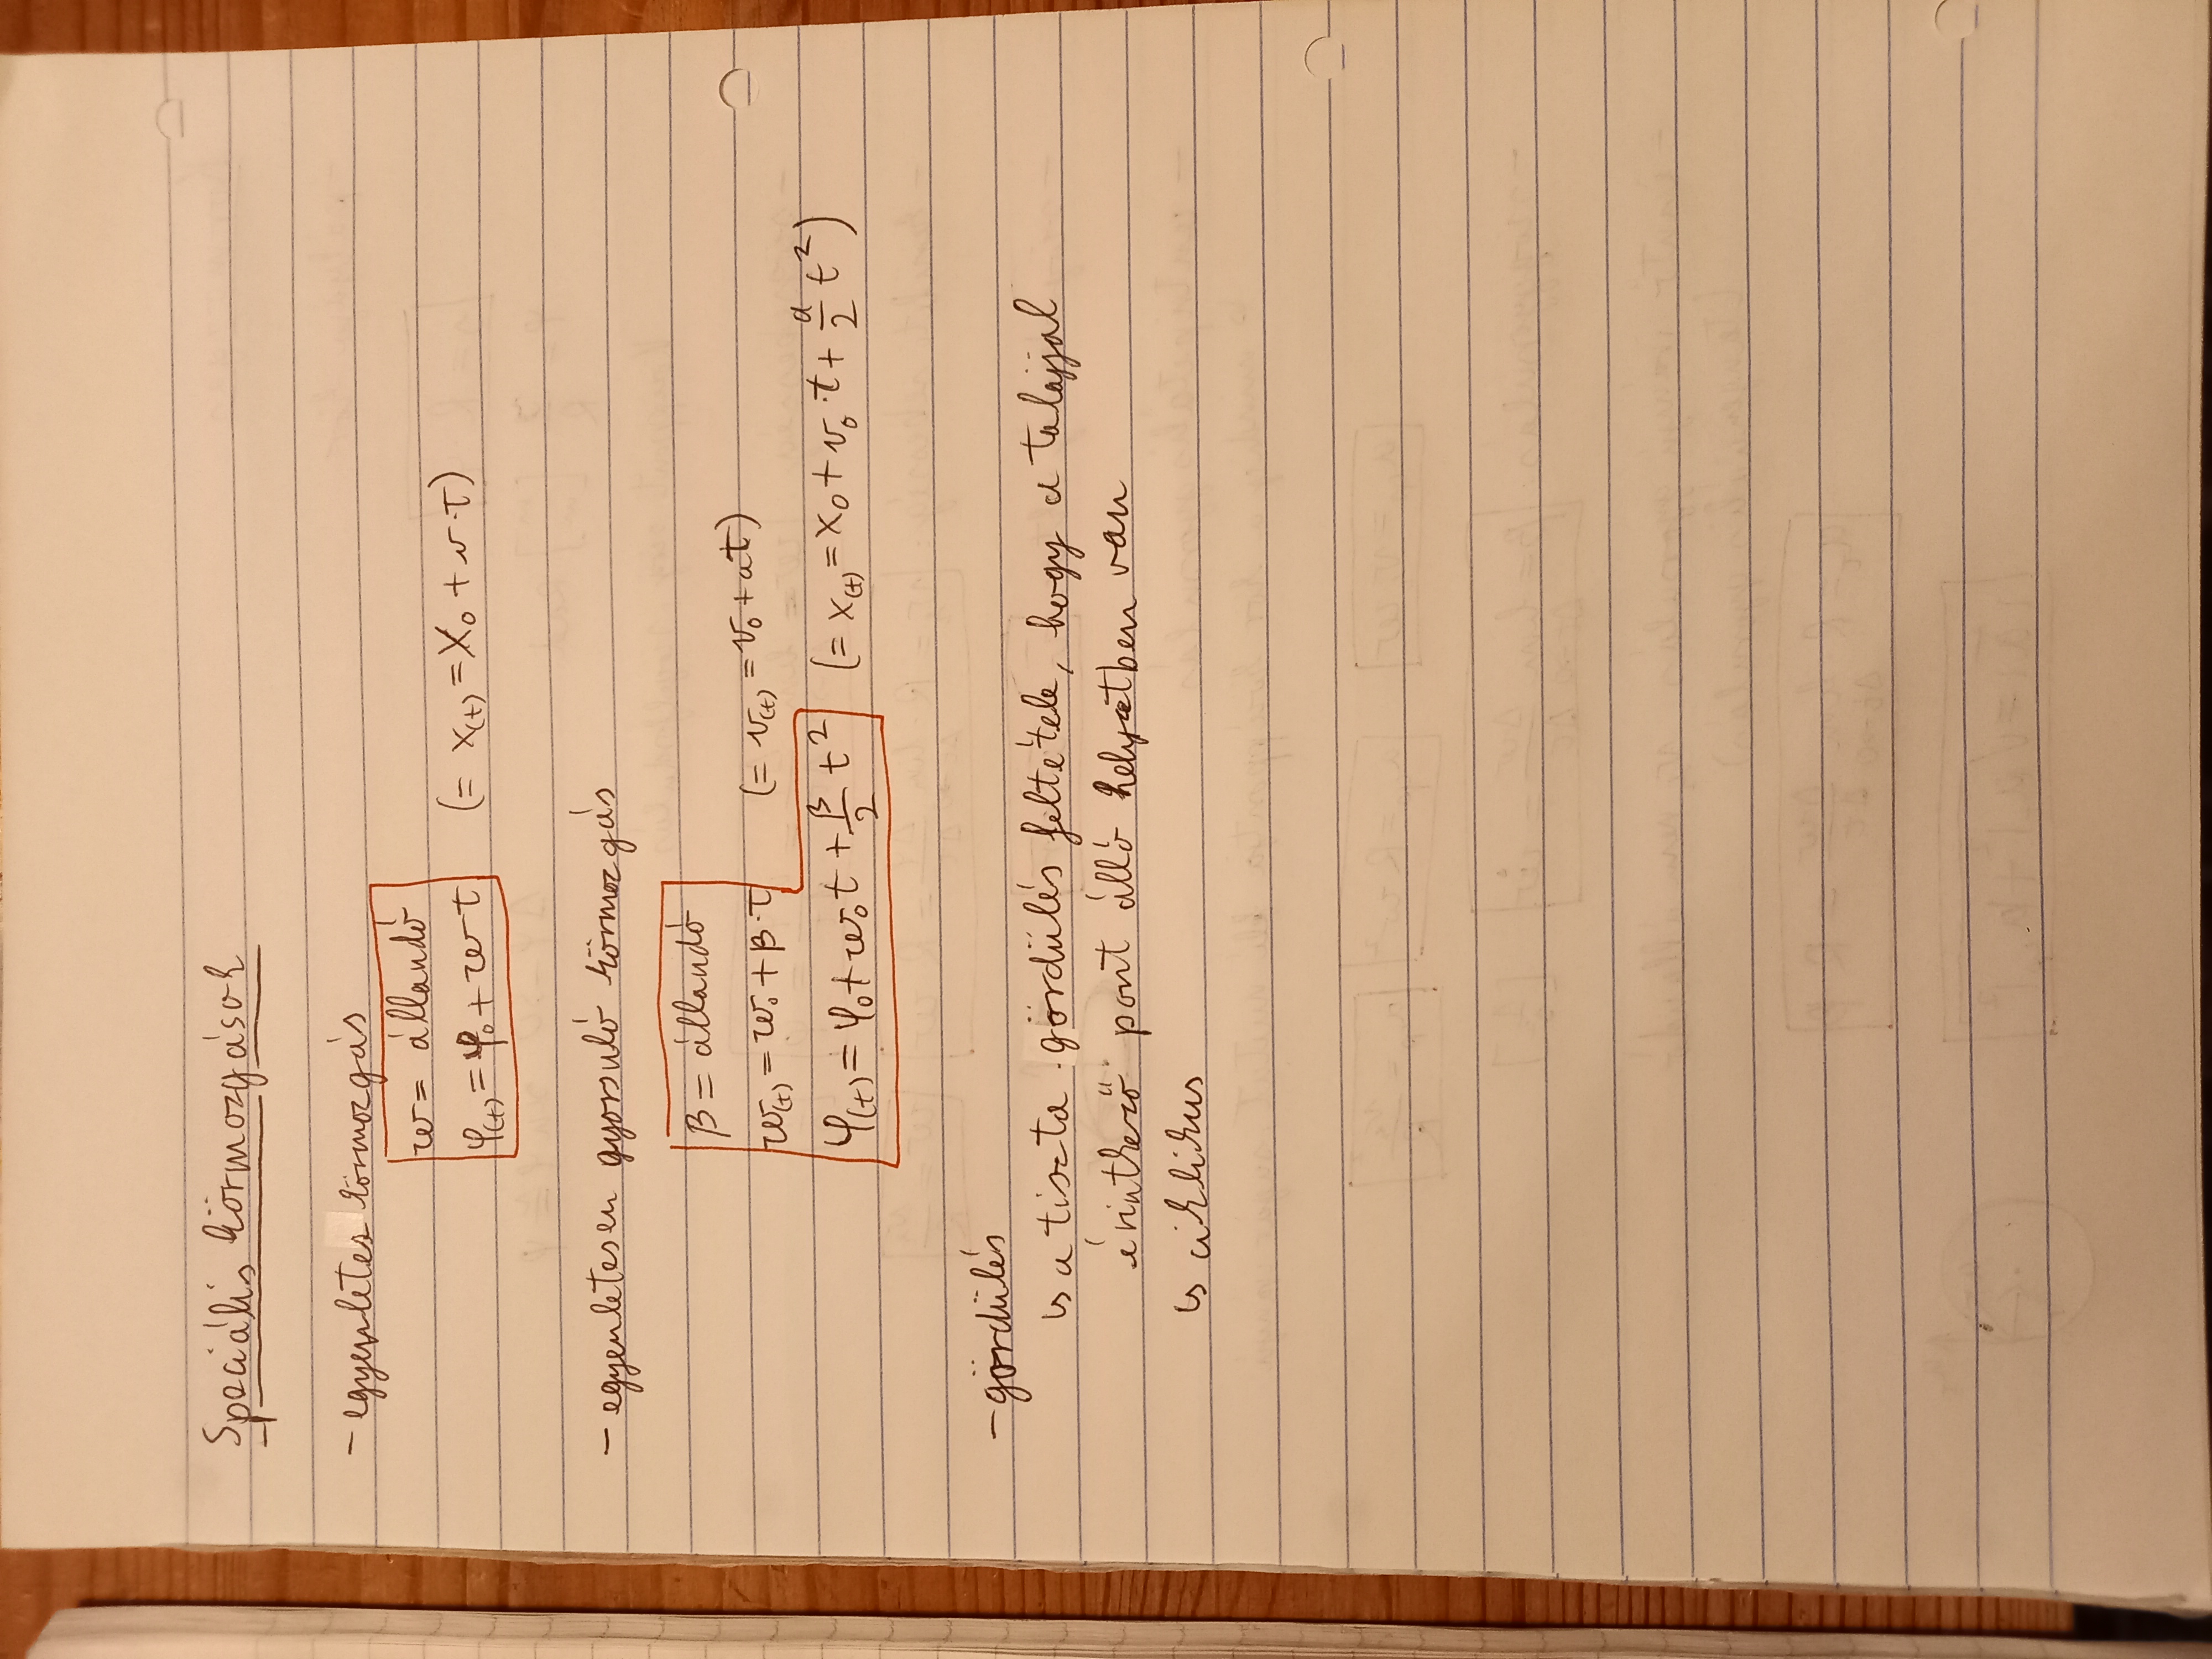 Speciális körmozgások
- egyenletes körmozgás
ω = állandó
φ(t) = φ₀ + ω t (= x(t) = x₀ + v · t)
- egyenletesen gyorsuló körmozgás
β = állandó
ω(t) = ω₀ + β · t (= v(t) = v₀ + at)
φ(t) = φ₀ + ω₀ t + β/2 t² (= x(t) = x₀ + v₀ · t + a/2 t²)
- gördülés
↳ a tiszta gördülés feltétele, hogy a talajjal
érintkező pont álló helyzetben van
↳ ciklikus